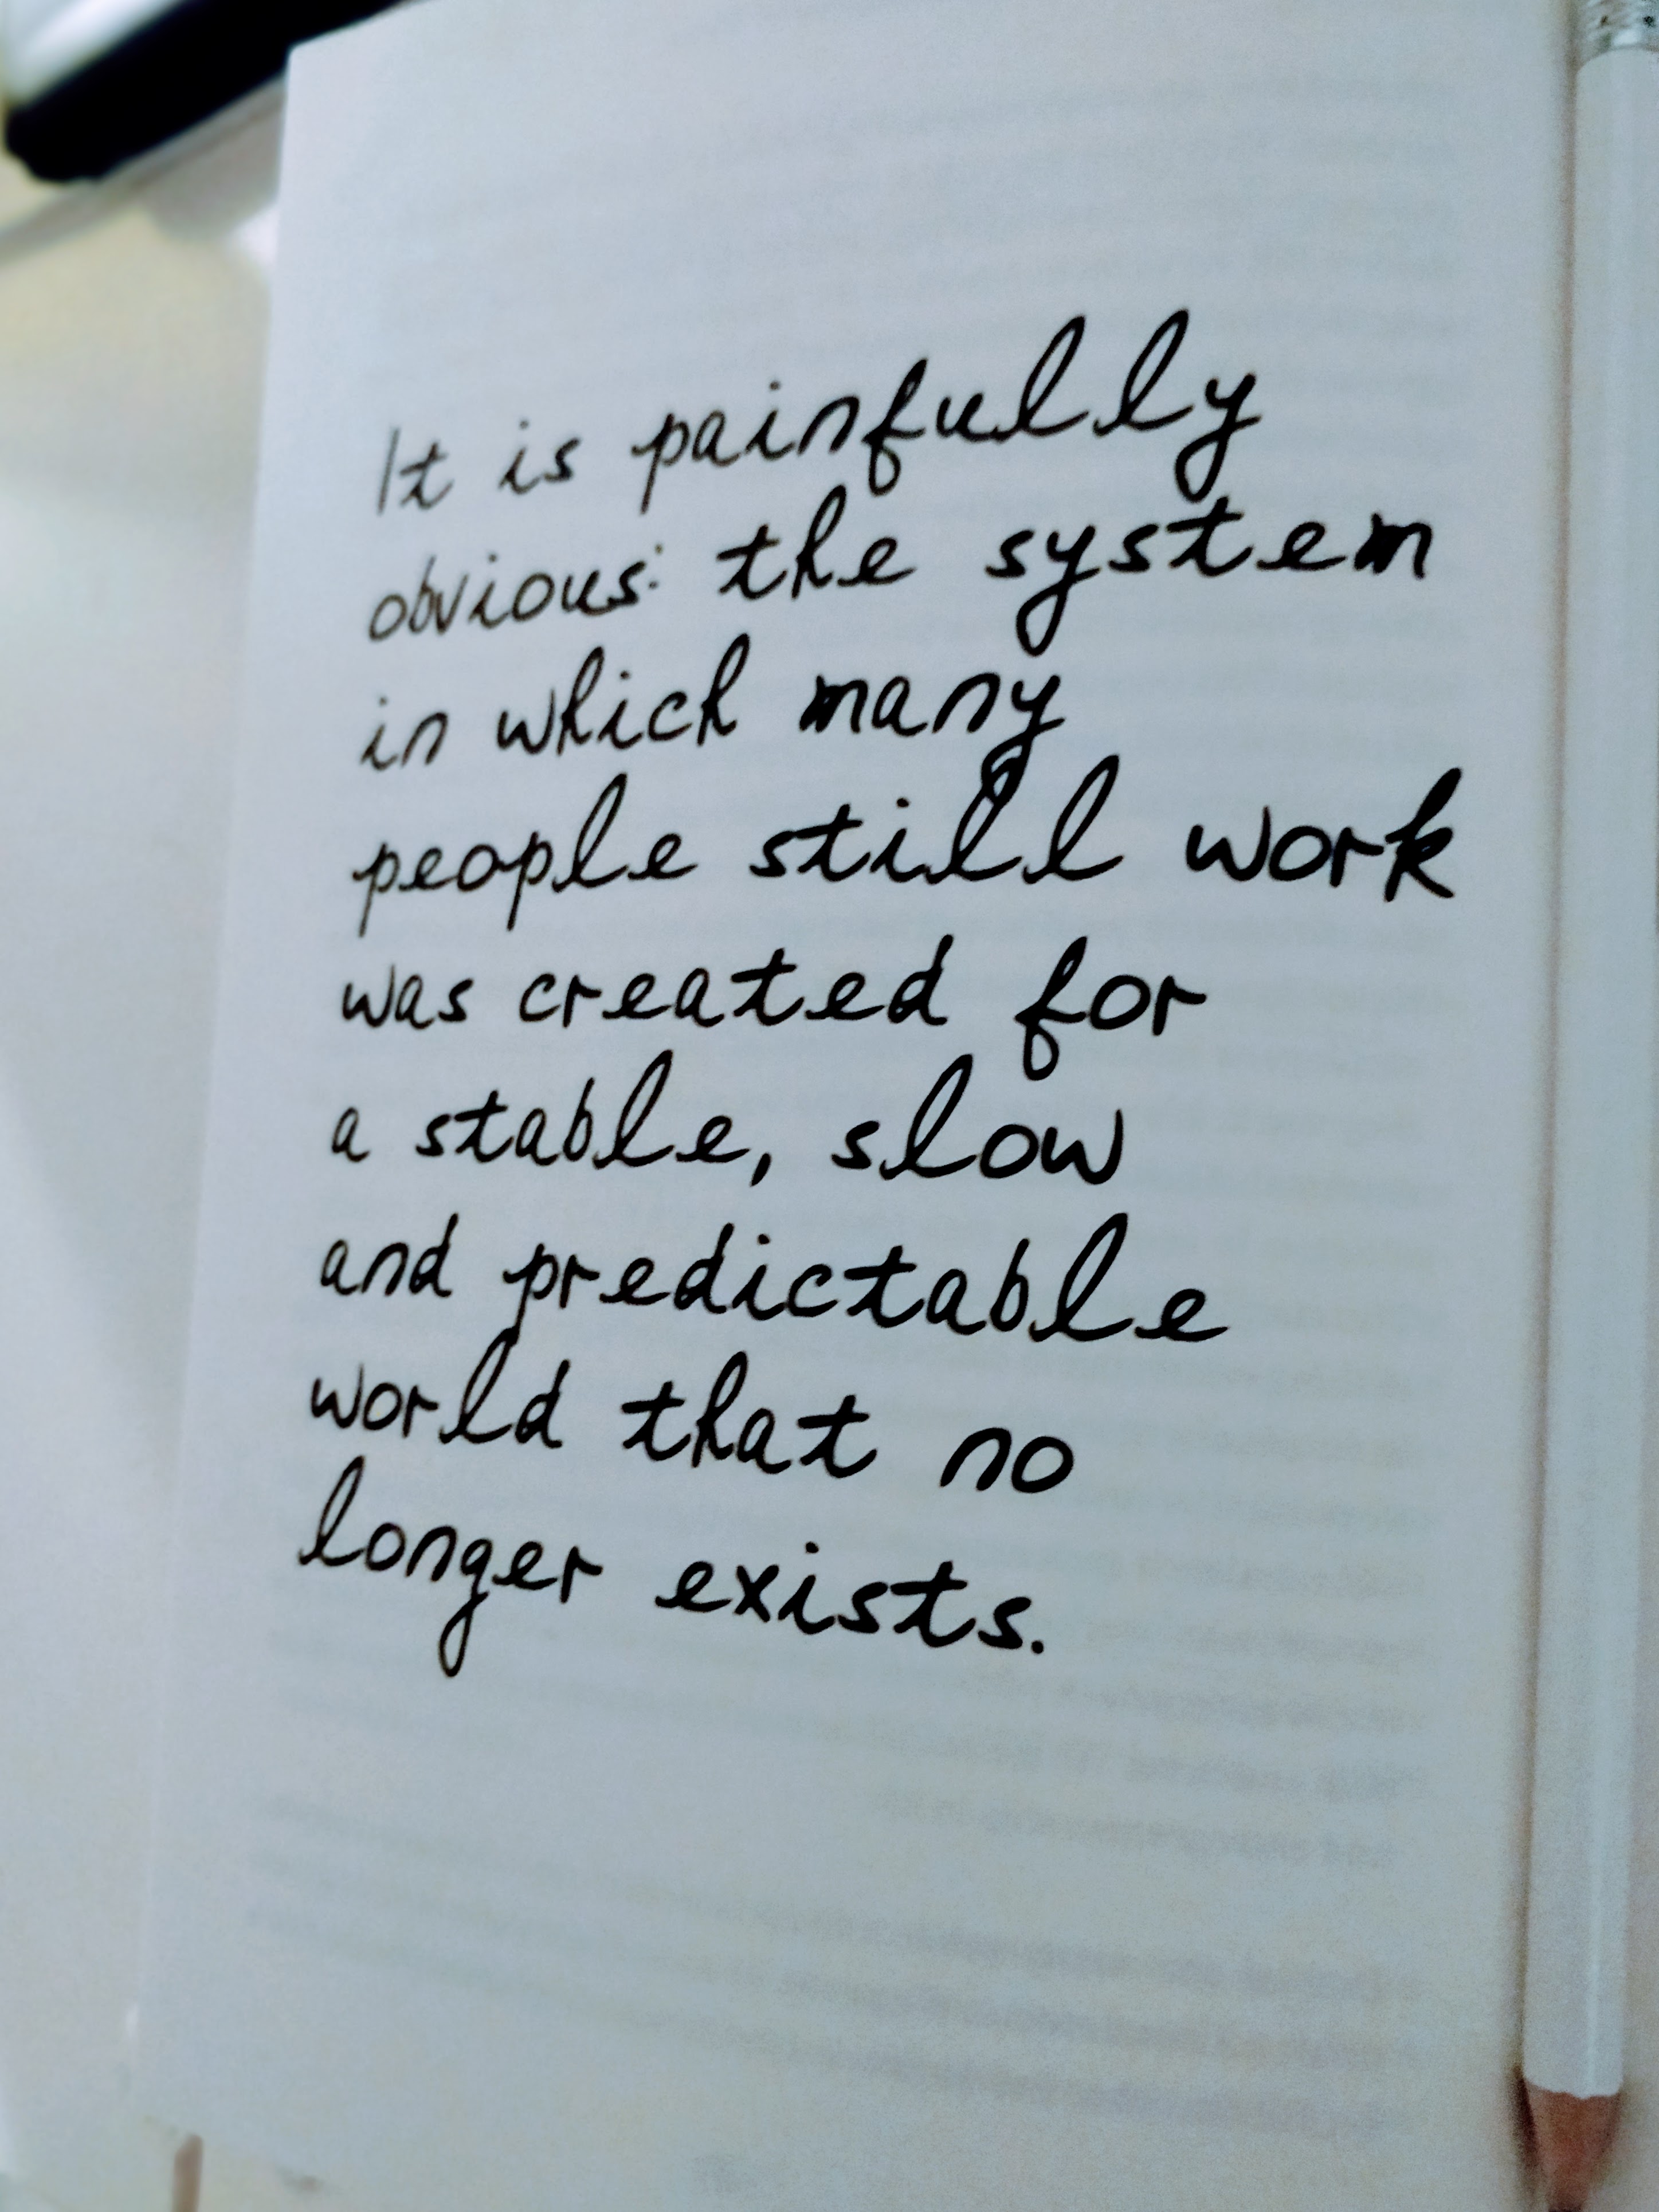 It is painfully
obvious: the system
in which many
people still work
was created for
a stable, slow
and predictable
world that no
longer exists.